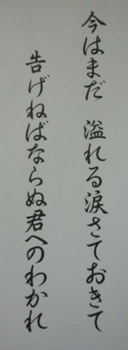 今はまだ 溢れる涙さておきて
告げねばならぬ君へのわかれ